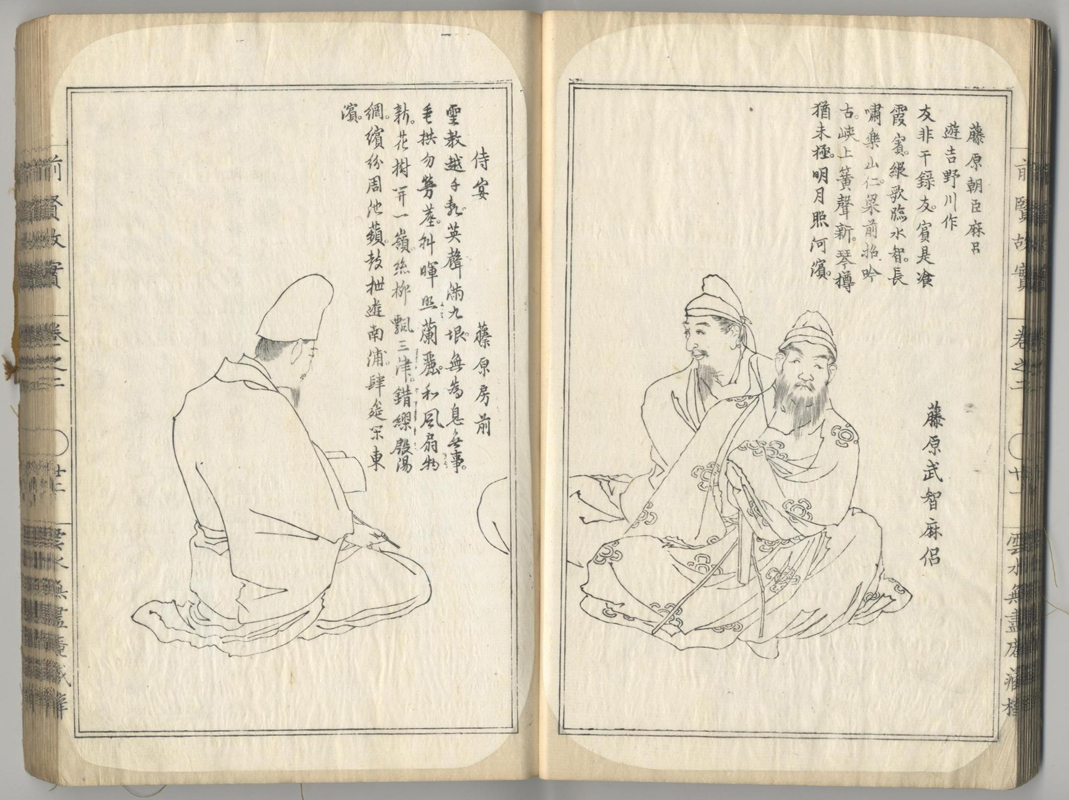 藤原朝臣麻呂
遊吉野川作
友非干録友。賓是飡
霞賓。縱歌臨水智。長
嘯樂山仁。梁前招吟
古。峽上簧聲新。琴樽
猶未極。明月照河濱。
藤原武智麻侶
前賢故實 卷之二 廿一 雲水無盡庵藏梓
侍宴 藤原房前
聖教越千禩。英聲滿九垠。無為息無事。
垂拱勿勞塵。斜暉照蘭麗。和風扇物
新。花樹開一嶺。絲柳飄三津。錯繆殷湯
網。繽紛周池蘋。鼓枻遊南浦。肆筵樂東
濱。
前賢故實 卷之二 廿二